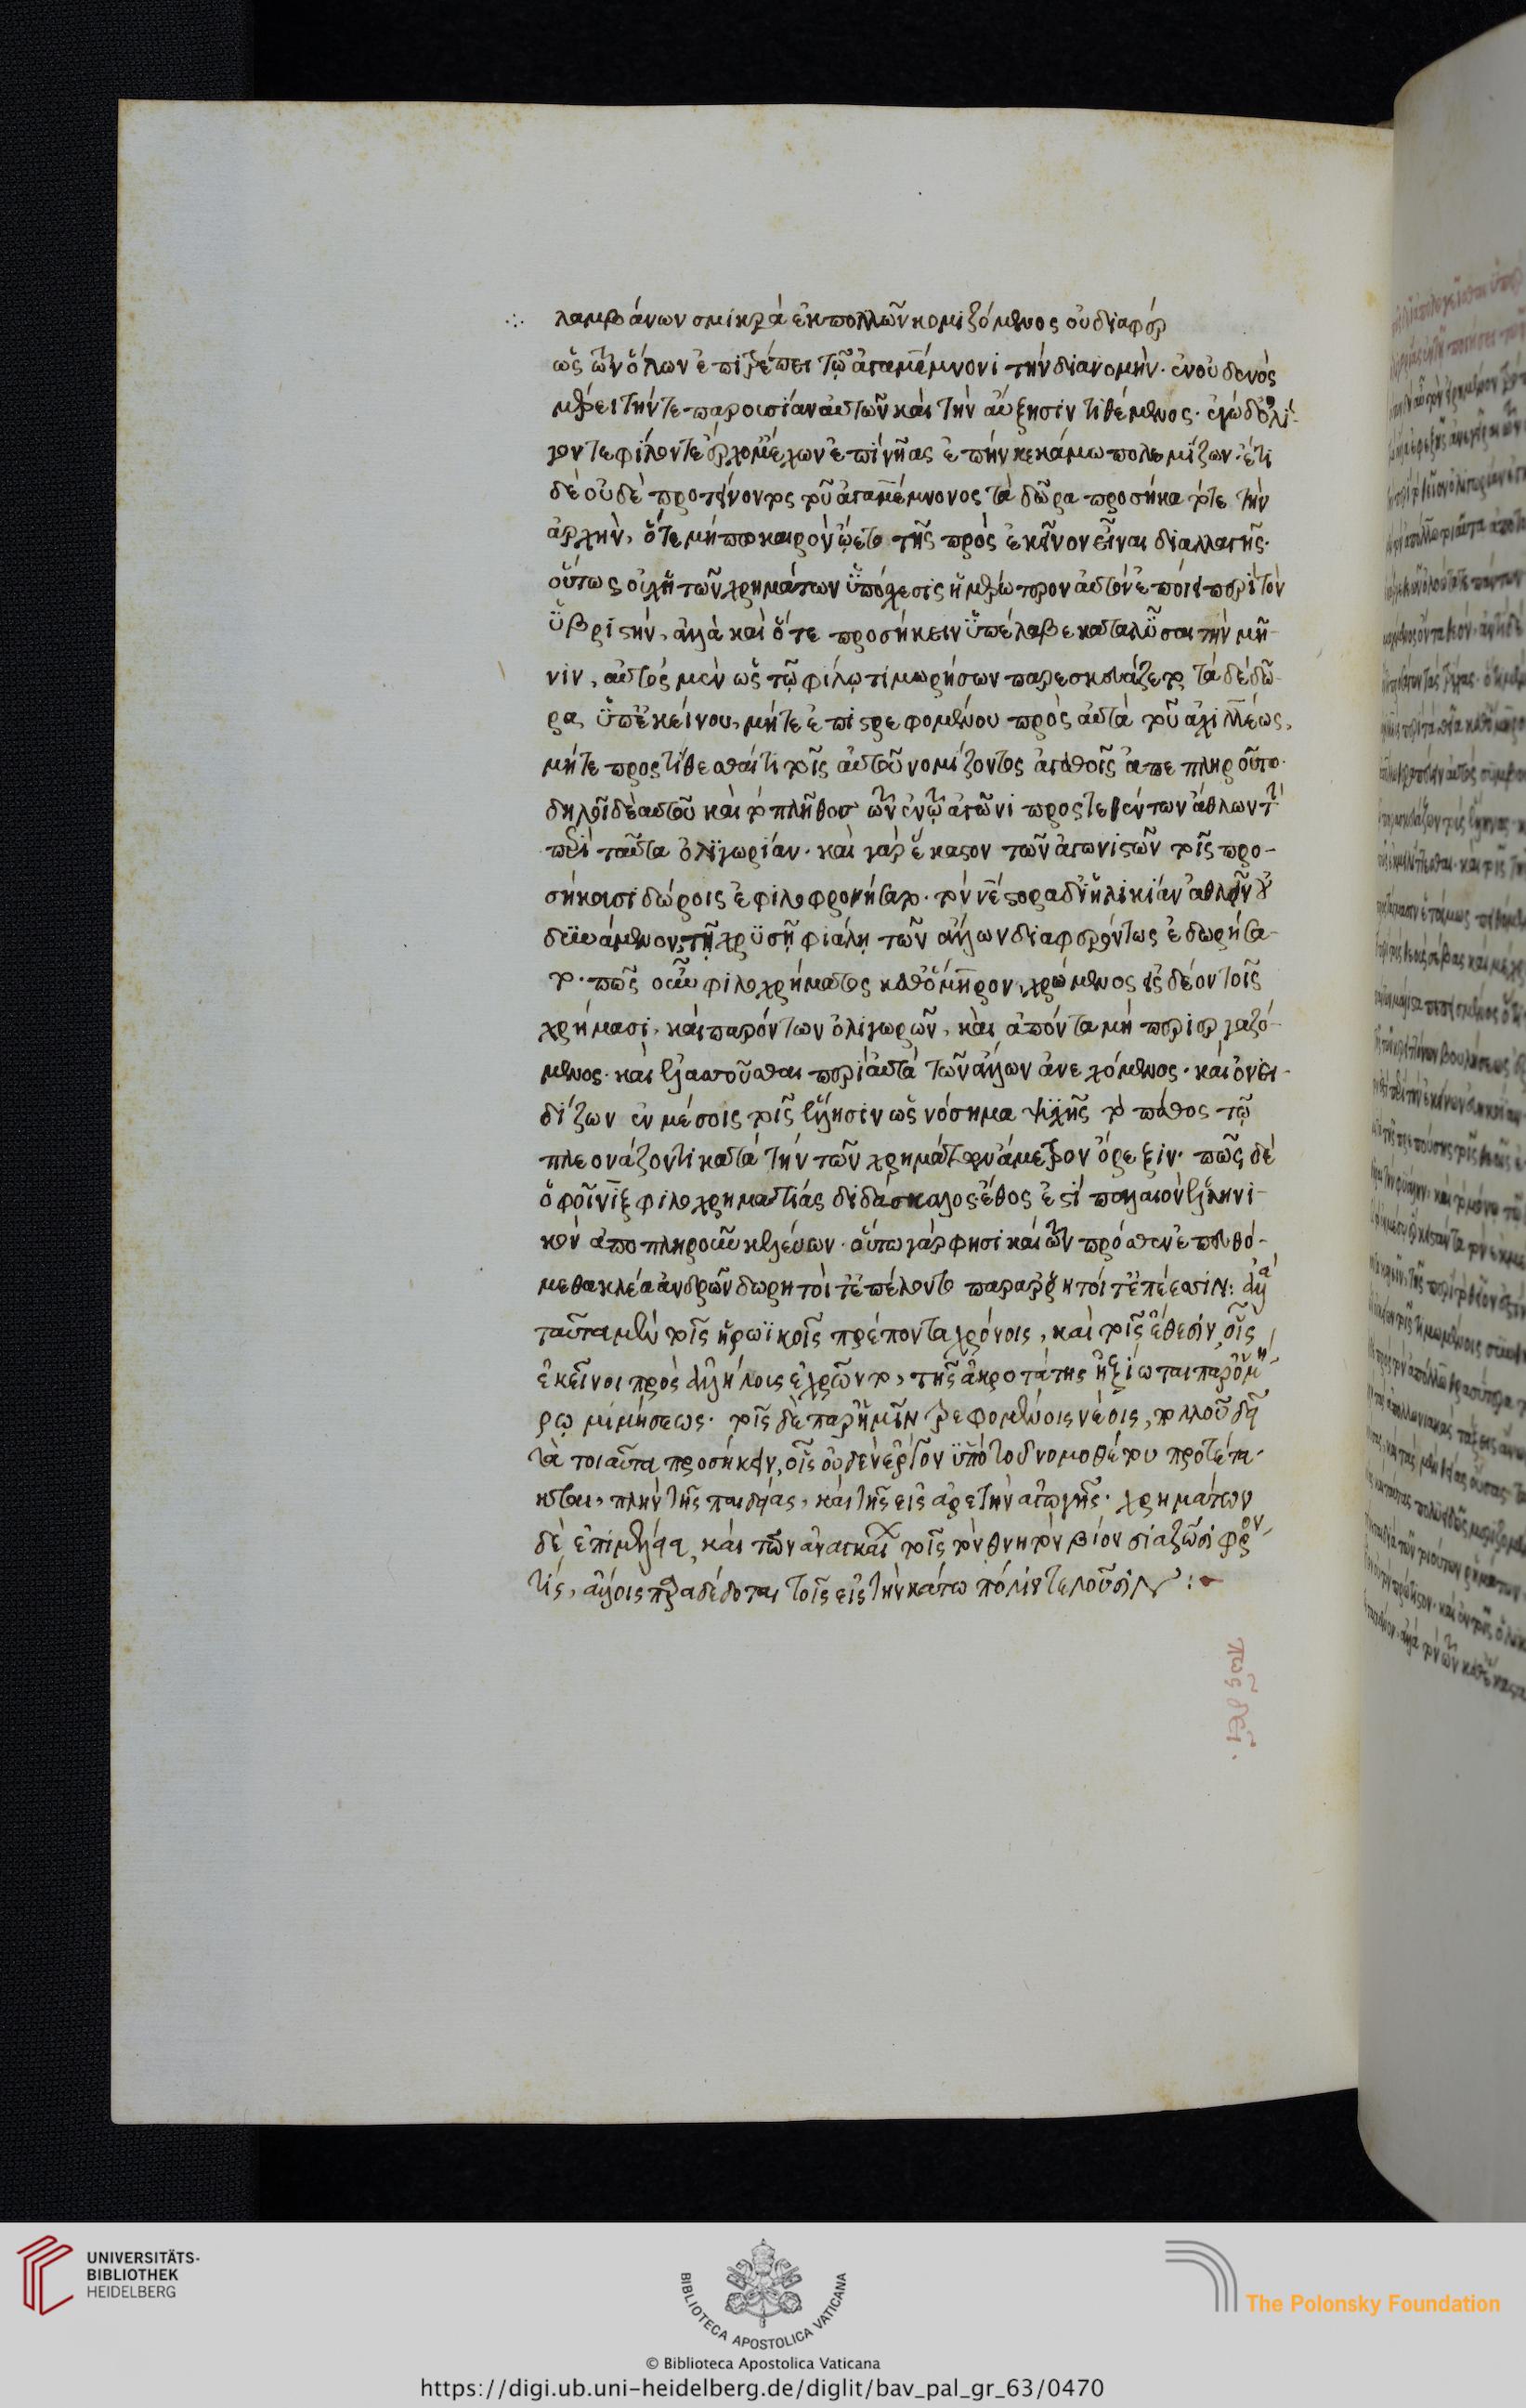 λαμβάνων σμικρὰ ἐκ πολλῶν κομιζόμενος οὐ διαφέρ
ὡς ὧν ὅλων ἐπιτρέπει τῷ ἀγαμέμνονι τὴν διανομὴν. ἐν οὐδενὸς
μέρει τήν τε παρουσίαν αὐτῶν καὶ τὴν αὔξησιν τιθέμενος. ἐγὼ δ' ὀλί-
γον τε φίλον τε ἔρχομ' ἔχων ἐπὶ νῆας ἐπὴν κεκάμω πολεμίζων. ἔτι
δὲ οὐδὲ προτείνοντος τοῦ ἀγαμέμνονος τὰ δῶρα προσήκατό τε τὴν
ἀρχὴν, ὅτε μήπω καιρὸν ᾤετο τῆς πρὸς ἐκεῖνον εἶναι διαλλαγῆς.
οὕτως οὐχ ἡ τῶν χρημάτων ὑπόσχεσις ἡμερώτερον αὐτὸν ἐποίει περὶ τὸν
ὑβριστήν, ἀλλὰ καὶ ὅτε προσήκειν ὑπέλαβε καταλῦσαι τὴν μῆ-
νιν, αὐτὸς μὲν ὡς τῷ φίλῳ τιμωρήσων παρεσκευάζετο τὰ δὲ δῶ-
ρα ὑπ' ἐκείνου, μήτε ἐπιστρεφομένου πρὸς αὐτὰ τοῦ ἀχιλλέως,
μήτε προστίθεσθαί τι τοῖς αὐτοῦ νομίζοντος ἀγαθοῖς ἀπεπληροῦτο.
δηλοῖ δὲ αὐτοῦ καὶ τὸ πλῆθος τῶν ἐν τῷ ἀγῶνι προστεθέντων ἄθλων τὴν
περὶ ταῦτα ὀλιγωρίαν. καὶ γὰρ ἕκαστον τῶν ἀγωνιστῶν τοῖς προ-
σήκουσι δώροις ἐφιλοφρονήσατο. τὸν νέστορα δι' ἡλικίαν ἀθλεῖν οὐ
δυνάμενον, τῇ χρυσῇ φιάλῃ τῶν ἄλλων διαφερόντως ἐδωρήσα-
το. πῶς οὖν φιλοχρήματος καθ' ὅμηρον, χρώμενος εἰς δέον τοῖς
χρήμασι, καὶ παρόντων ὀλιγωρῶν, καὶ ἀπόντα μὴ περιεργαζό-
μενος. καὶ ἐλαττοῦσθαι περὶ αὐτὰ τῶν ἄλλων ἀνεχόμενος. καὶ ὀνει-
δίζων ἐν μέσοις τοῖς ἕλλησιν ὡς νόσημα ψυχῆς τὸ πάθος τῷ
πλεονάζοντι κατὰ τὴν τῶν χρημάτων ἄμετρον ὄρεξιν. πῶς δὲ
ὁ φοῖνιξ φιλοχρηματίας διδάσκαλος ἔθος ἐστὶ παλαιὸν ἑλληνι-
κὸν ἀποπληροῦν κελεύων. οὕτω γάρ φησι καὶ τῶν πρόσθεν ἐπευθό-
μεθα κλέα ἀνδρῶν δωρητοί τ' ἐπέλοντο παράρρητοί τ' ἐπέεσσιν: ἀλλὰ
ταῦτα μὲν τοῖς ἡρωϊκοῖς πρέποντα χρόνοις, καὶ τοῖς ἔθεσιν οἷς
ἐκεῖνοι πρὸς ἀλλήλοις ἐχρῶντο, τῆς ἀκροτάτης ἠξίωται παρ' ὁμή-
ρῳ μιμήσεως. τοῖς δὲ παρ' ἡμῖν τρεφομένοις νέοις, πολλοῦ δεῖ
τὰ τοιαῦτα προσήκειν, οἷς οὐδὲν ἔργον ὑπὸ τοῦ νομοθέτου προτέτα-
κται, πλὴν τῆς παιδείας, καὶ τῆς εἰς ἀρετὴν ἀγωγῆς. χρημάτων
δὲ ἐπιμέλεια, καὶ τῶν ἀναγκαίων τοῖς τὸν θνητὸν βίον διαζῶσι φρον-
τίς, ἄλλοις παραδέδοται τοῖς εἰς τὴν κάτω πόλιν τελοῦσιν:
πῶς δεῖ.
UNIVERSITÄTS-
BIBLIOTHEK
HEIDELBERG
BIBLIOTECA APOSTOLICA VATICANA
The Polonsky Foundation
© Biblioteca Apostolica Vaticana
https://digi.ub.uni-heidelberg.de/diglit/bav_pal_gr_63/0470